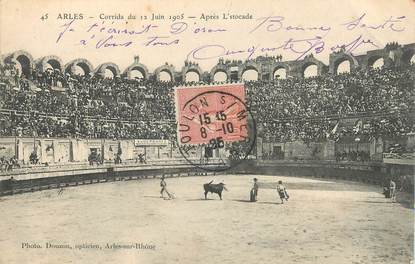 45 ARLES – Corrida du 12 Juin 1905 – Après L'stocade
Je t'écrirait D'oran Bonne Santé
à vous tous
TOULON S. MER
15 45
8 · 10
Photo. Douzon, opticien, Arles-sur-Rhône